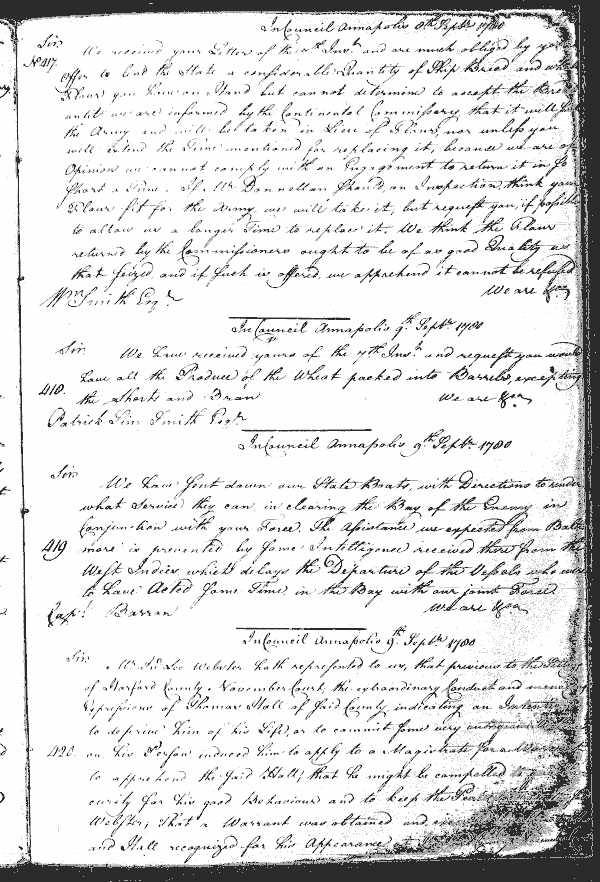 In Council Annapolis 8th Septr 1780
Sir
No 417. We received your Letter of the 4th Inst. and are much obliged by your
Offer to lend the State a considerable Quantity of Ship Bread and what
Flour you have on Hand but cannot determine to accept the Bread
until we are informed by the Continental Commissary that it will suit
the Army and will be taken in Lieu of Flour, nor unless you
will extend the Time mentioned for replacing it, because we are of
Opinion we cannot comply with an Engagement to return it in so
short a Time. If Mr Donnellan should, on Inspection, think your
Flour fit for the Army, we will take it, but request you, if possible
to allow us a longer Time to replace it. We think the Flour
returned by the Commissioners ought to be of as good Quality as
that seized, and if such is offered, we apprehend it cannot be refused
We are &ca
Wm Smith Esqr.
In Council Annapolis 9th Septr. 1780
Sir We have received yours of the 7th Inst. and request you would
have all the Produce of the Wheat packed into Barrels, excepting
418. the Shorts and Bran We are &ca
Patrick Sim Smith Esqr.
In Council Annapolis 9th Septr. 1780
Sir
We have sent down our State Boats, with Directions to render
what Service they can, in clearing the Bay of the Enemy in
Conjunction with your Force. The Assistance we expected from Balti
419 more is prevented by some Intelligence received there from the
West Indies which delays the Departure of the Vessels who were
to have Acted some Time, in the Bay with our joint Force
We are &ca
Capt. Barron
In Council Annapolis 9th Septr. 1780
Sir Mr Jn. Lee Webster hath represented to us, that previous to the
of Harford County November Court, the extraordinary Conduct and
Expressions of Thomas Hall of said County indicating an Intention
to deprive him of his Life, or to commit some very
420 on his Person induced him to apply to a Magistrate for a Warrant
to apprehend the said Hall; that he might be compelled to
curity for his good Behaviour and to keep the Peace
Webster; that a Warrant was obtained and
and Hall recognized for his Appearance at